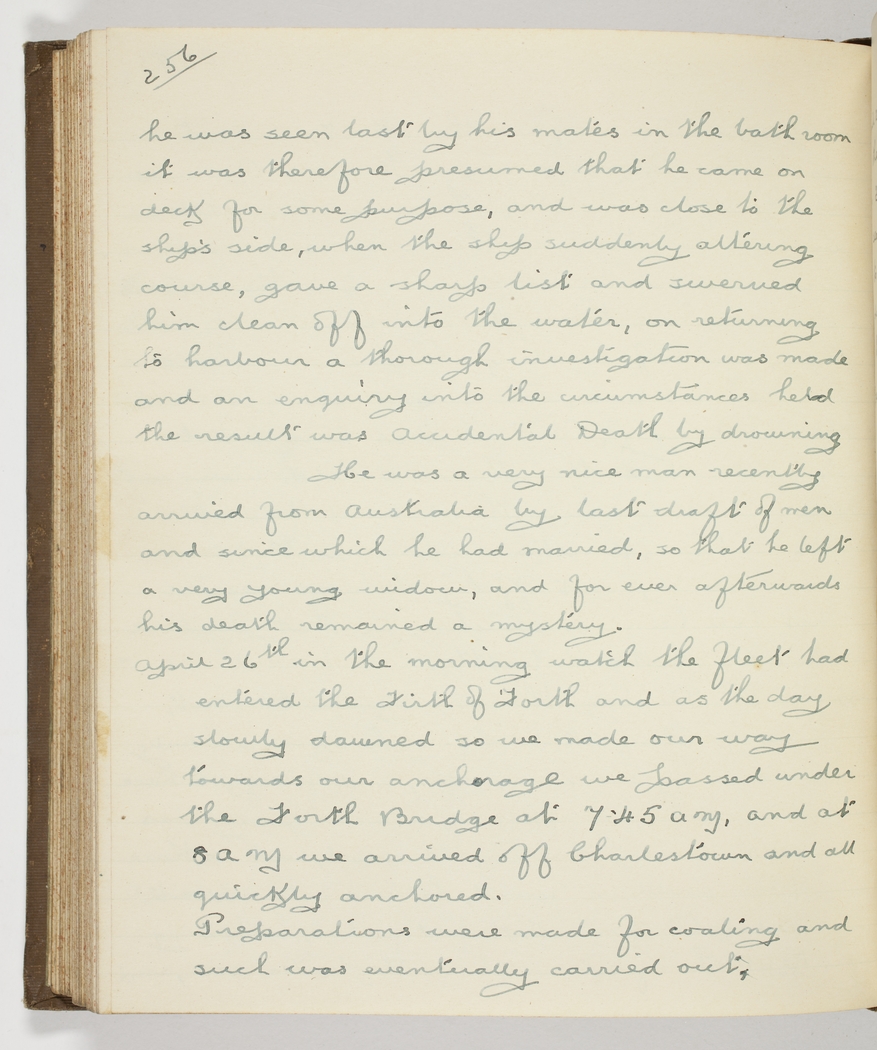 256
he was seen last by his mates in the bath room
it was therefore presumed that he came on
deck for some purpose, and was close to the
ship's side, when the ship suddenly altering
course, gave a sharp list and swerved
him clean off into the water, on returning
to harbour a thorough investigation was made
and an enquiry into the circumstances held
the result was Accidental Death by drowning
He was a very nice man recently
arrived from Australia by last draft of men
and since which he had married, so that he left
a very young widow, and for ever afterwards
his death remained a mystery.
April 26th in the morning watch the fleet had
entered the Firth of Forth and as the day
slowly dawned so we made our way
towards our anchorage we passed under
the Forth Bridge at 7.45 am, and at
8 am we arrived off Charlestown and all
quickly anchored.
Preparations were made for coaling and
such was eventually carried out,